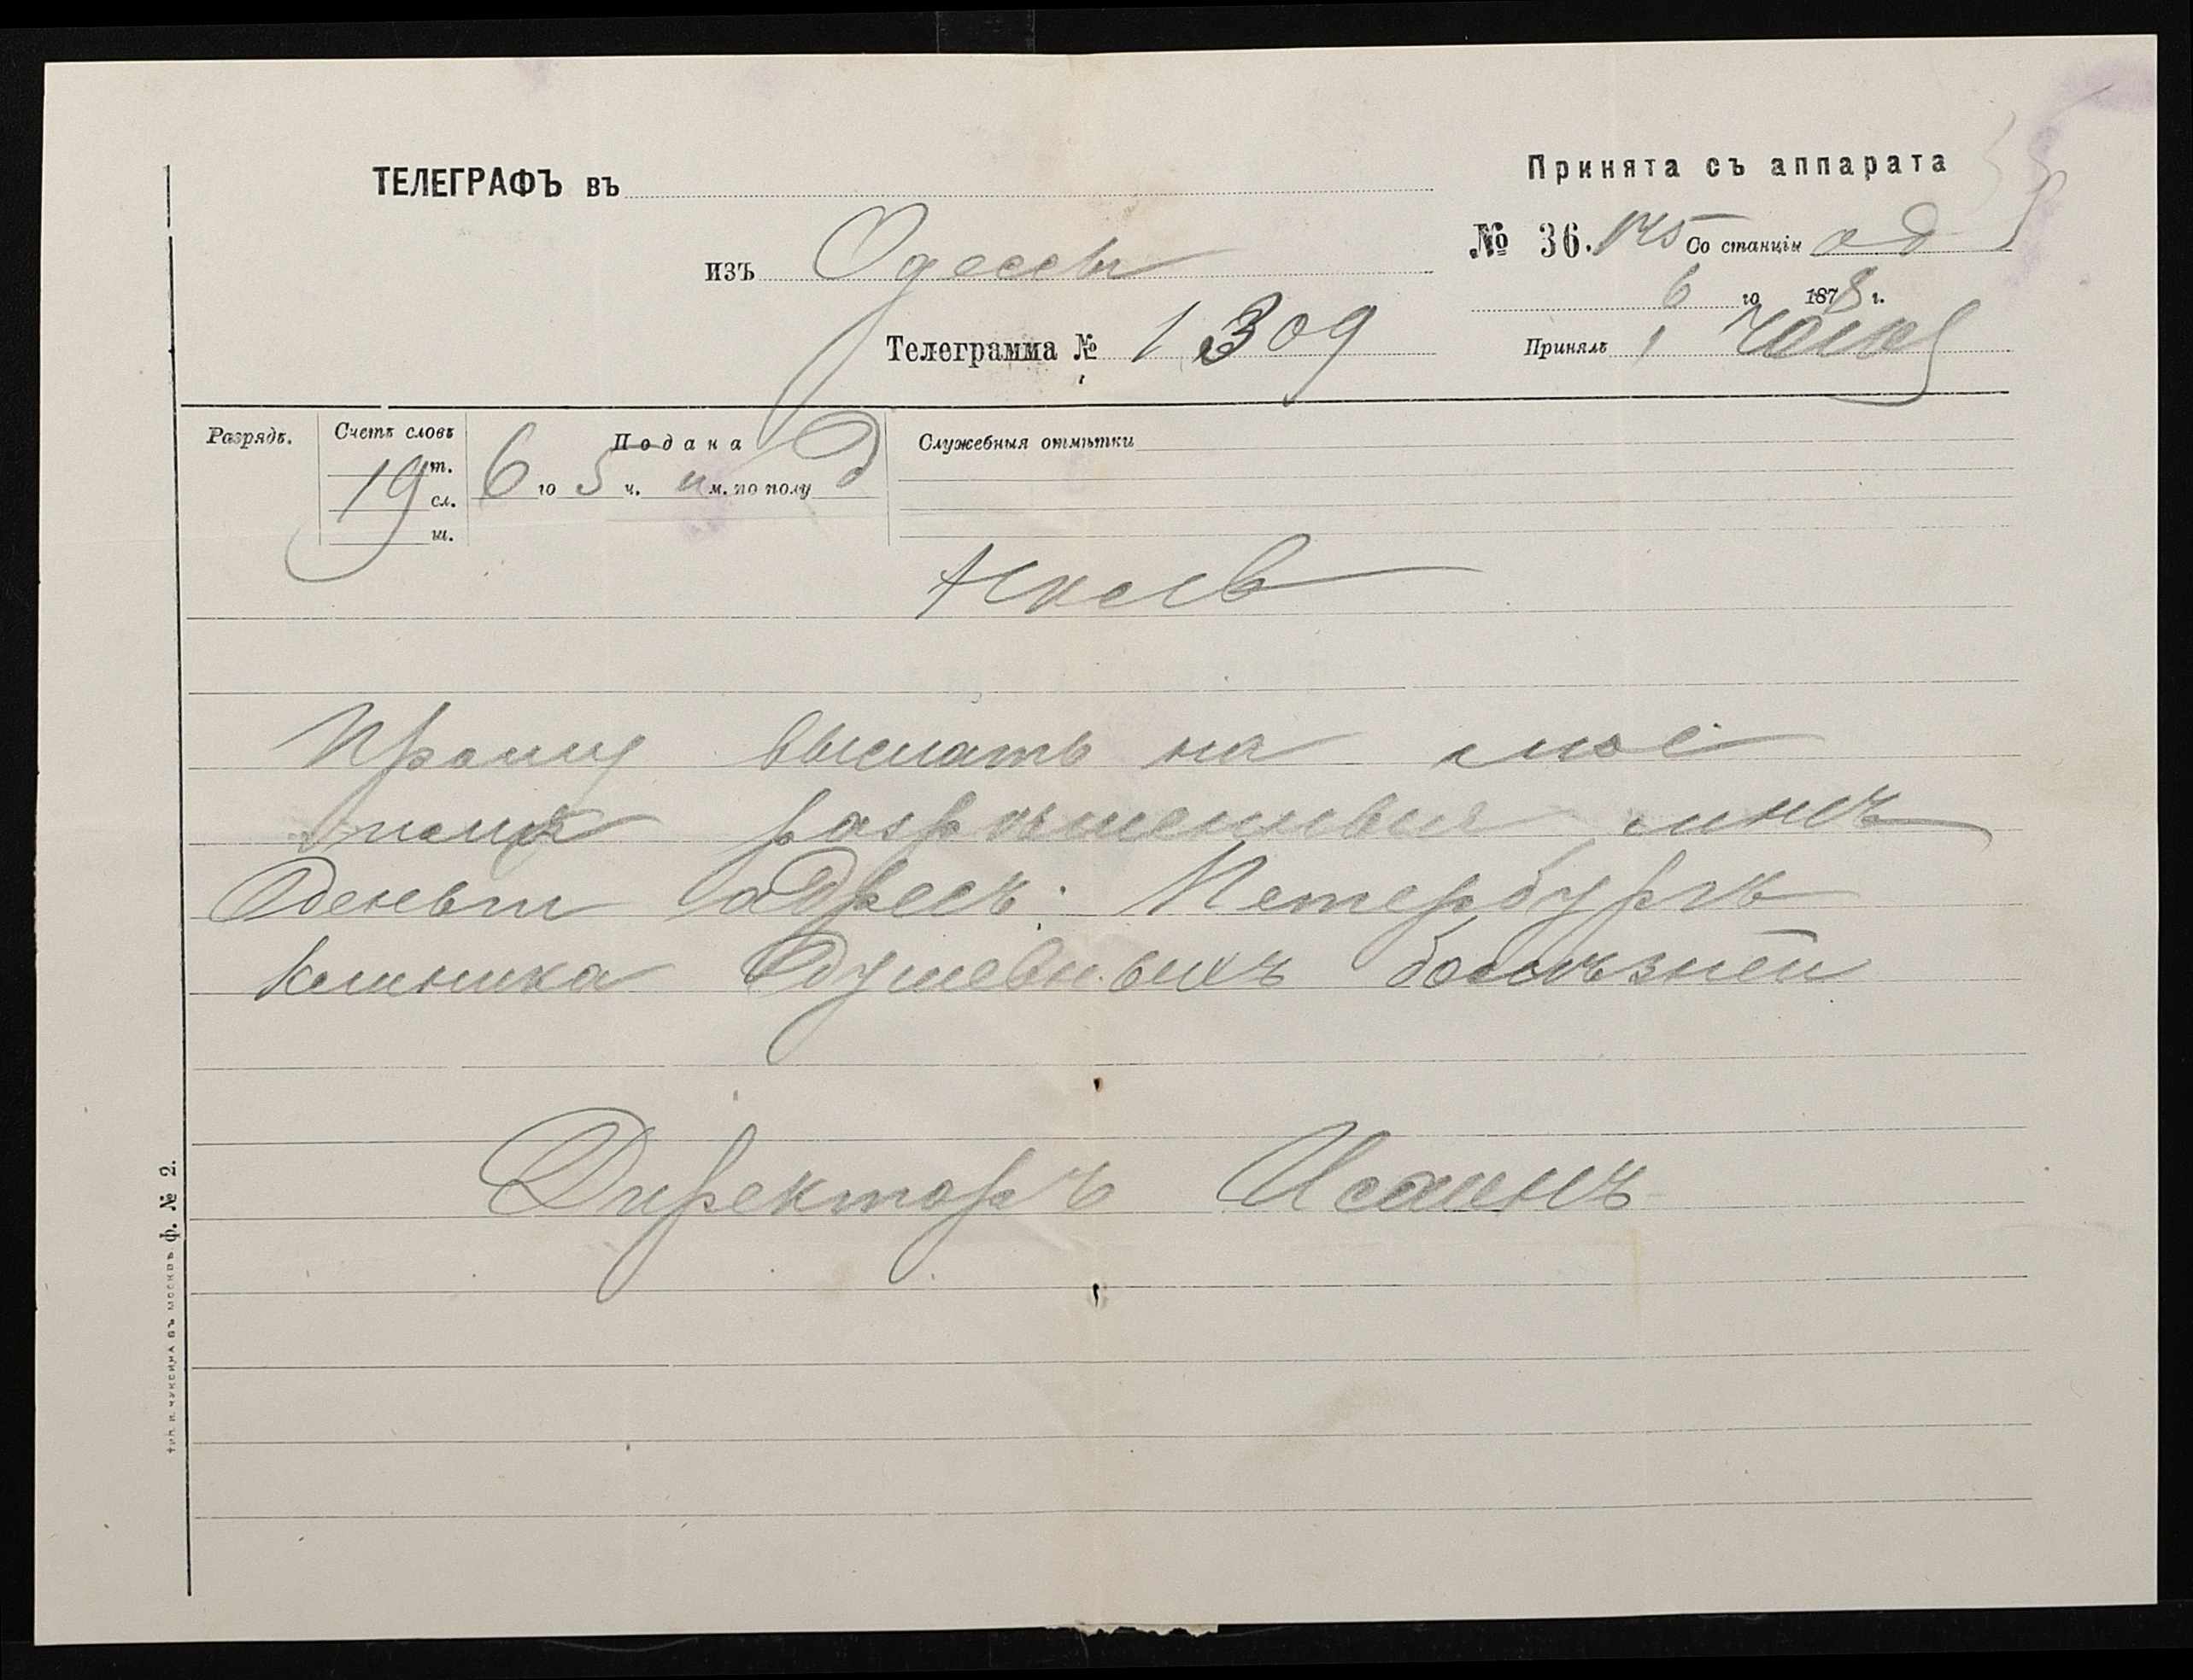 ТЕЛЕГРАФЪ въ
Принята съ аппарата
изъ Одессы
№ 36. 145 Со станціи од
6 го 1878 г.
Телеграмма № 1309
Принялъ
Разрядъ. Счетъ словъ Подана Служебныя отмѣтки
т.
19 сл. 6 го 5 ч. м. по полу д
ш.
Прошу выслать на мое
имя разрѣшенныя мнѣ
деньги адресъ: Петербургъ
клиника душевныхъ болѣзней
Директоръ
ф. № 2.
тип. и. чуксина въ москвѣ